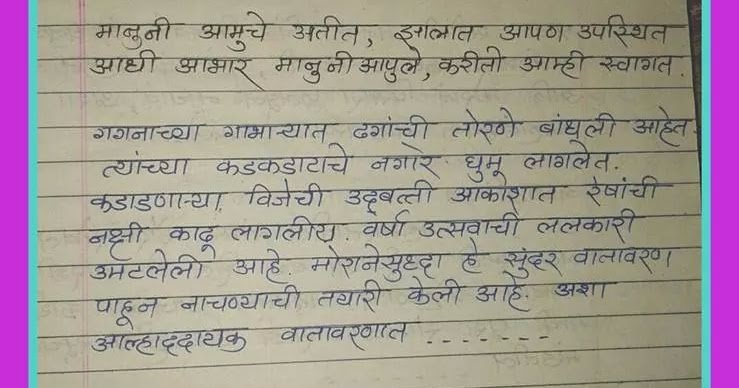 मानुनी आमुचे अतीत, झालात आपण उपस्थित
आधी आभार मानुनी आपुले, करीतो आम्ही स्वागत.
गगनाच्या गाभाऱ्यात ढगांची तोरणे बांधली आहेत.
त्यांच्या कडकडाटाचे नगारे घुमू लागलेत.
कडाडणाऱ्या विजेची उद्‌बत्ती आकाशात रेषांची
नक्षी काढू लागलीय. वर्षा उत्सवाची ललकारी
उमटलेली आहे. मोरानेसुध्दा हे सुंदर वातावरण
पाहून नाचण्याची तयारी केली आहे. अशा
आल्हाददायक वातावरणात .......